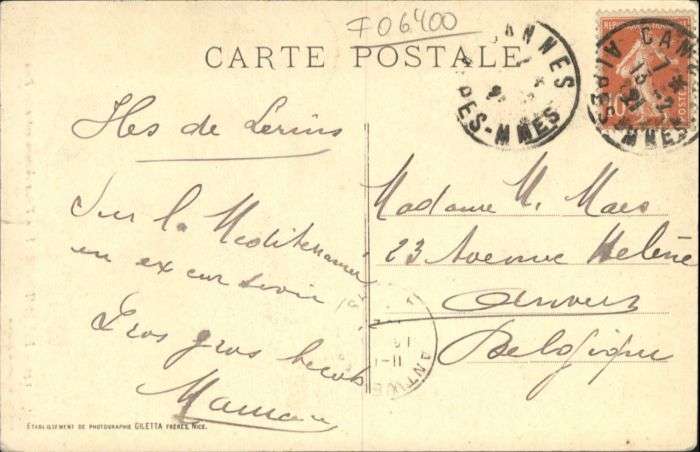 F06400
CARTE POSTALE
CANNES
ALPES-MMES
CANNES
ALPES-MMES
Iles de Lerins
Sur la Mediterranée
en excursion
Gros gros becots
Maman
Madame M. Maes
23 Avenue Helène
Anvers
Belgique
ANTWE
ÉTABLISSEMENT DE PHOTOGRAPHIE GILETTA FRÈRES, NICE.